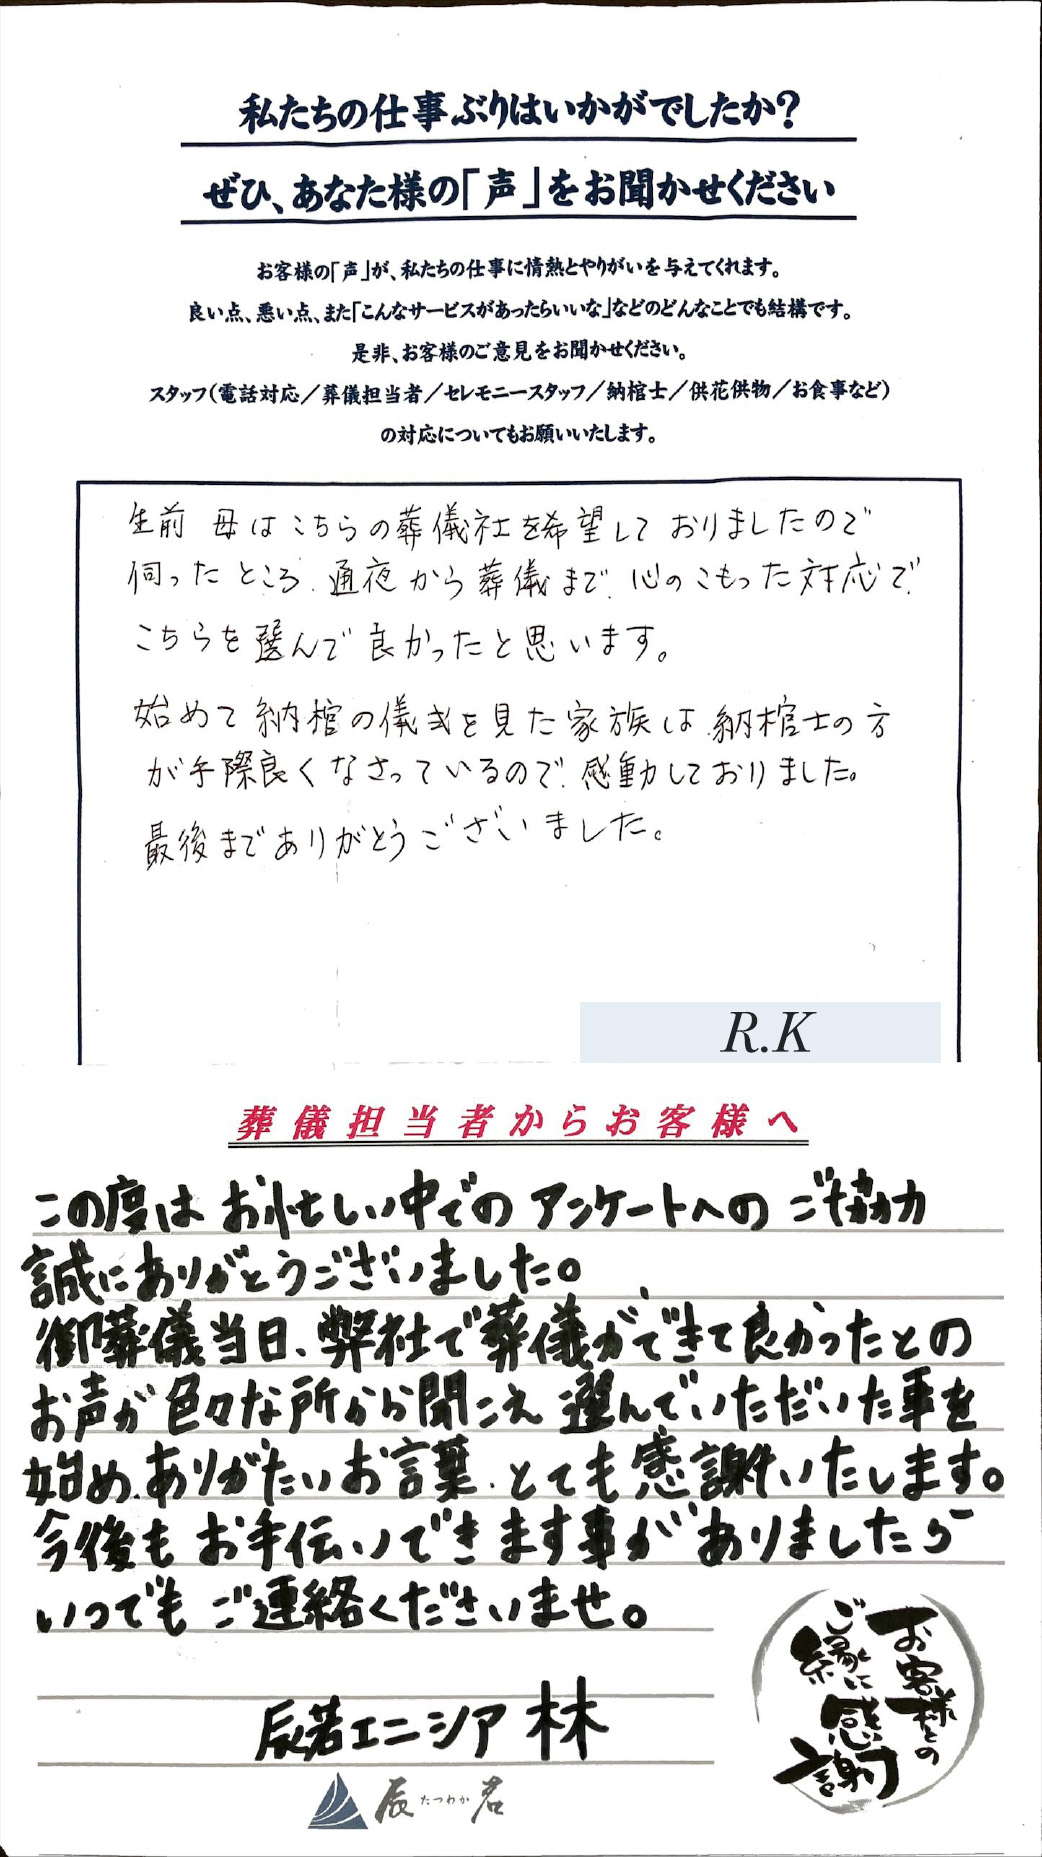 私たちの仕事ぶりはいかがでしたか?
ぜひ、あなた様の「声」をお聞かせください
お客様の「声」が、私たちの仕事に情熱とやりがいを与えてくれます。
良い点、悪い点、また「こんなサービスがあったらいいな」などのどんなことでも結構です。
是非、お客様のご意見をお聞かせください。
スタッフ(電話対応/葬儀担当者/セレモニースタッフ/納棺士/供花供物/お食事など)
の対応についてもお願いいたします。
生前 母はこちらの葬儀社を希望して おりましたので
伺ったところ、通夜から葬儀まで、心のこもった対応で、
こちらを選んで良かったと思います。
始めて納棺の儀式を見た家族は、納棺士の方
が手際良くなさっているので、感動しておりました。
最後までありがとうございました。
R.K
葬儀担当者からお客様へ
この度は お忙しい中での アンケートへの ご協力
誠にありがとうございました。
御葬儀当日、弊社で葬儀ができて良かったとの
お声が色々な所から聞こえ 選んでいただいた事を
始め、ありがたいお言葉、とても感謝いたします。
今後も お手伝いできます事が ありましたら
いつでも ご連絡くださいませ。
辰若エニシア 林
辰 たつわか 若
お客様との
ご縁に
感謝